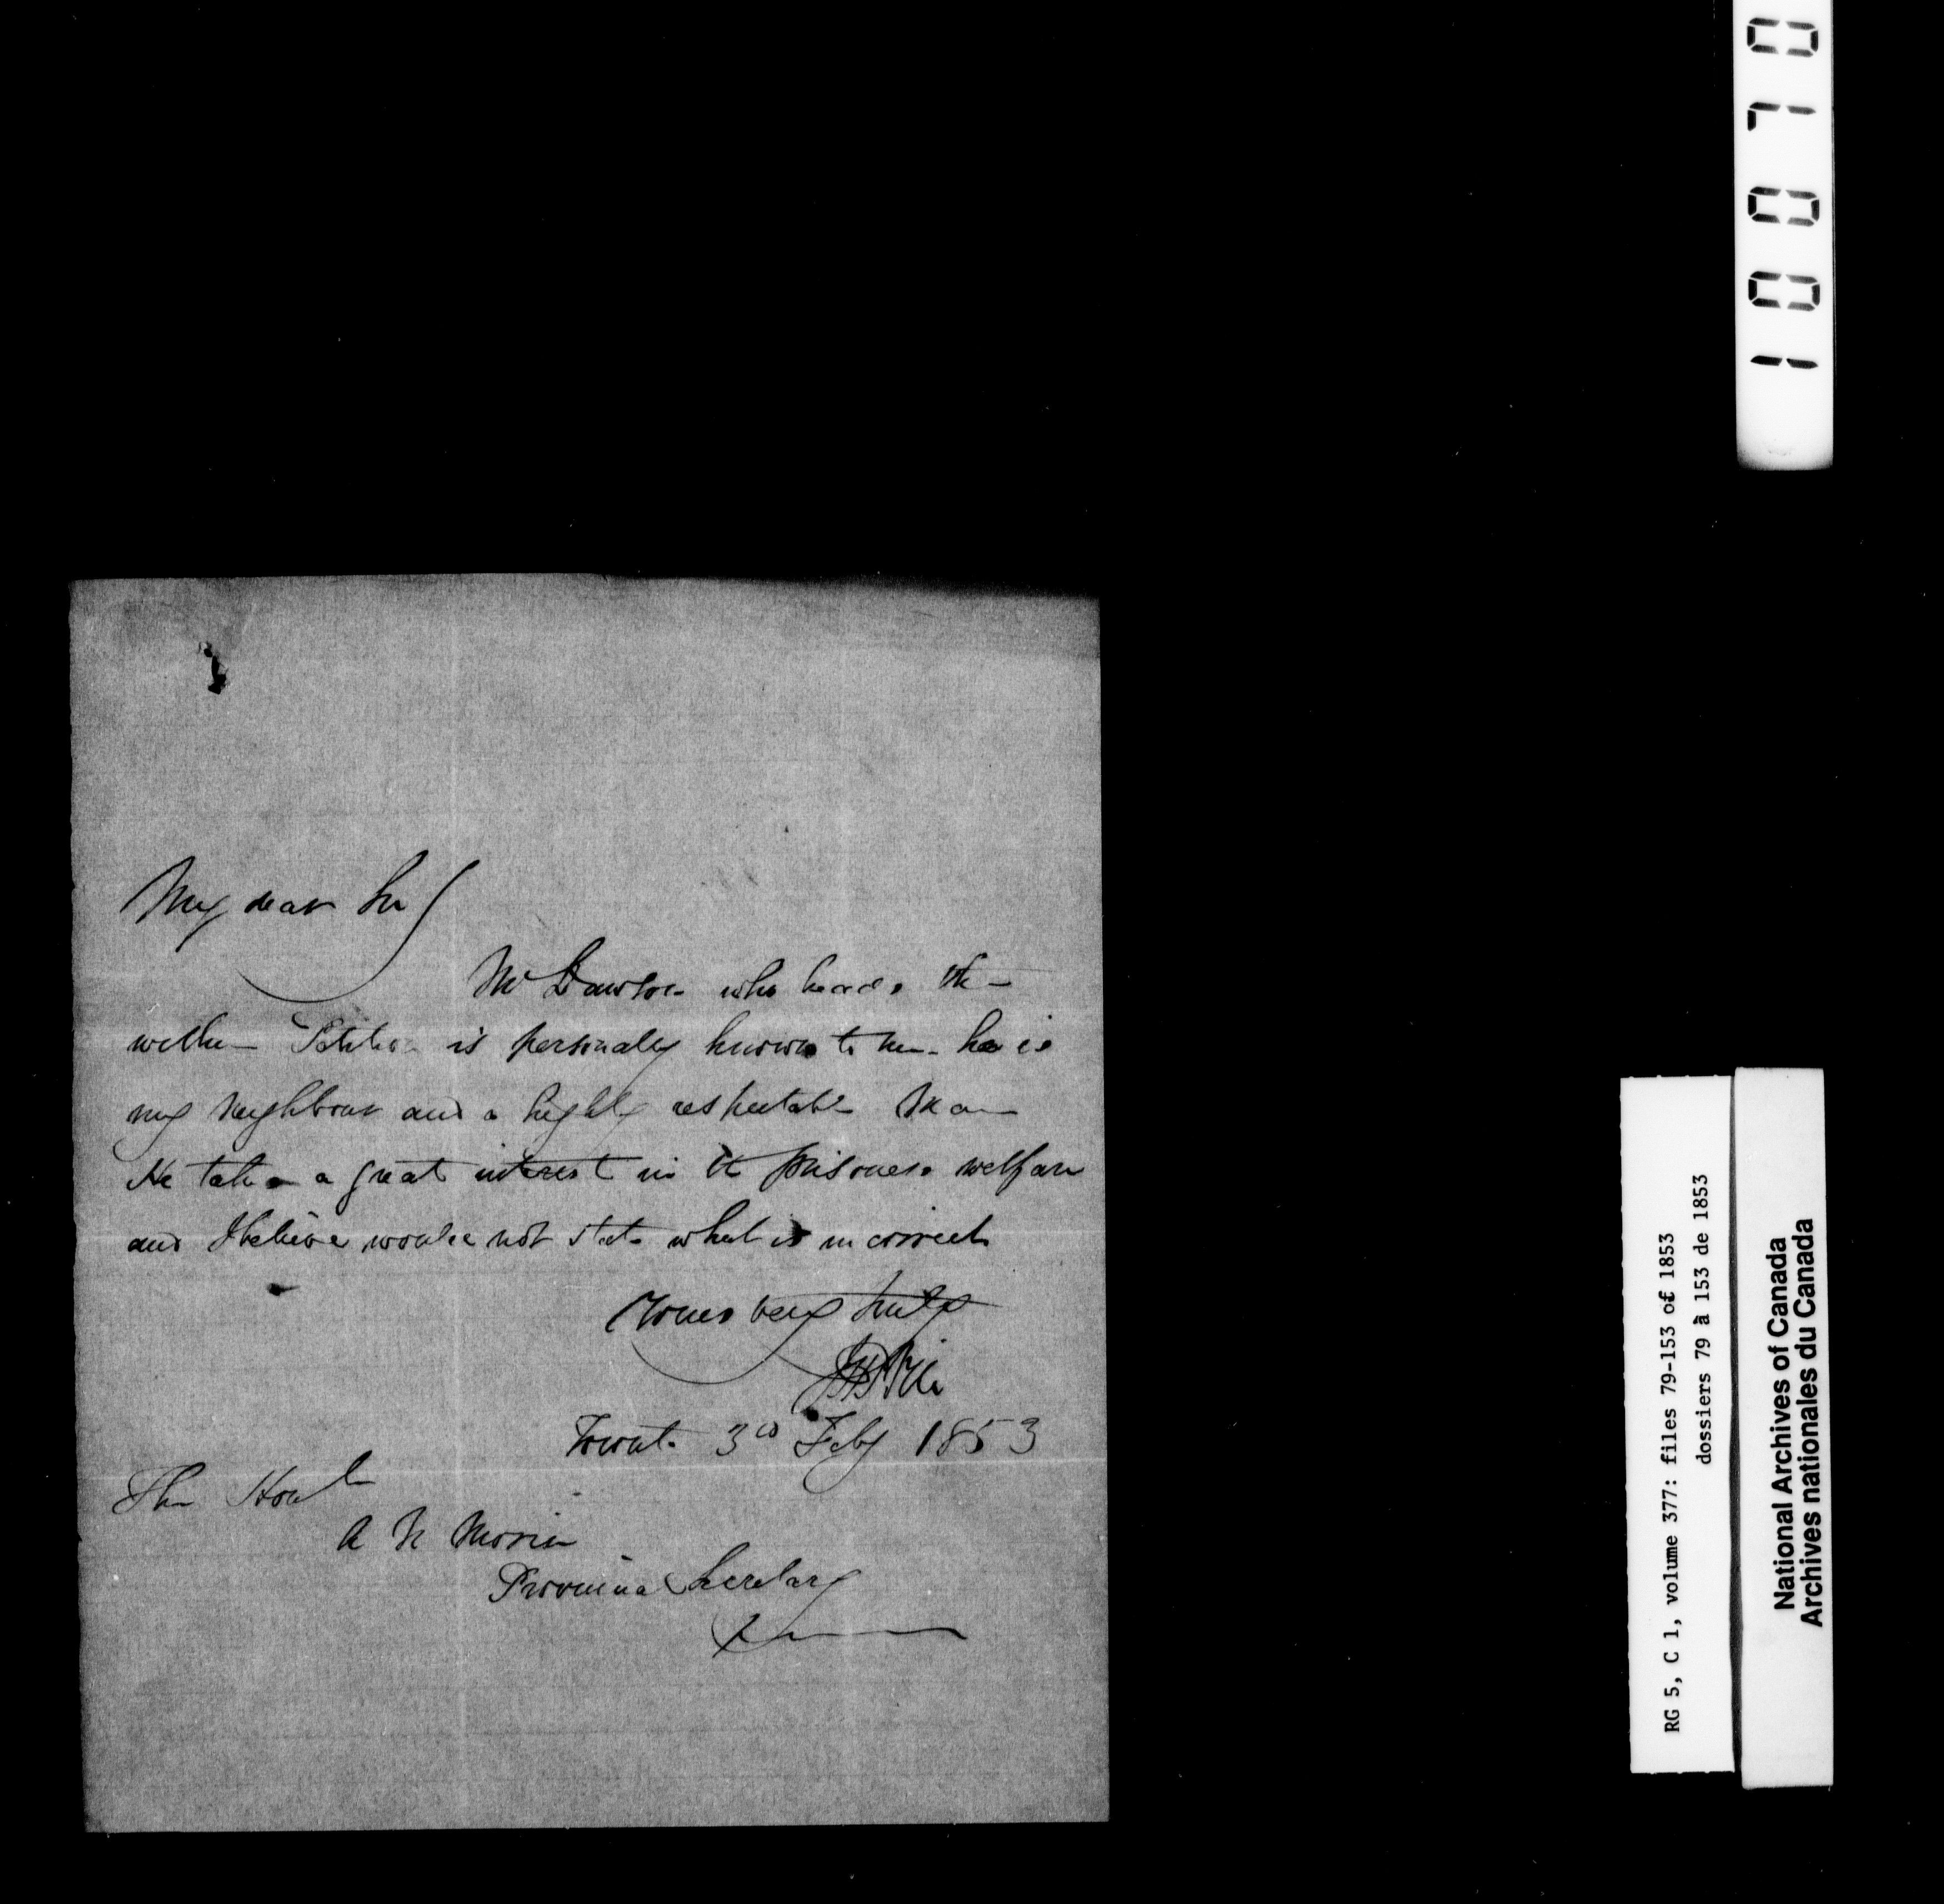 My dear Sir
Mr Dawson who heads the
within Petition is personally known to me - he is
my neighbour and a highly respectable Man
He takes a great interest in the prisoners welfare
and I believe would not state what is incorrect
Yours very truly
Toronto 3d Feby 1853
The Honl
A N Morin
Provincial Secretary
RG 5, C 1, volume 377: files 79-153 of 1853
dossiers 79 à 153 de 1853
National Archives of Canada
Archives nationales du Canada